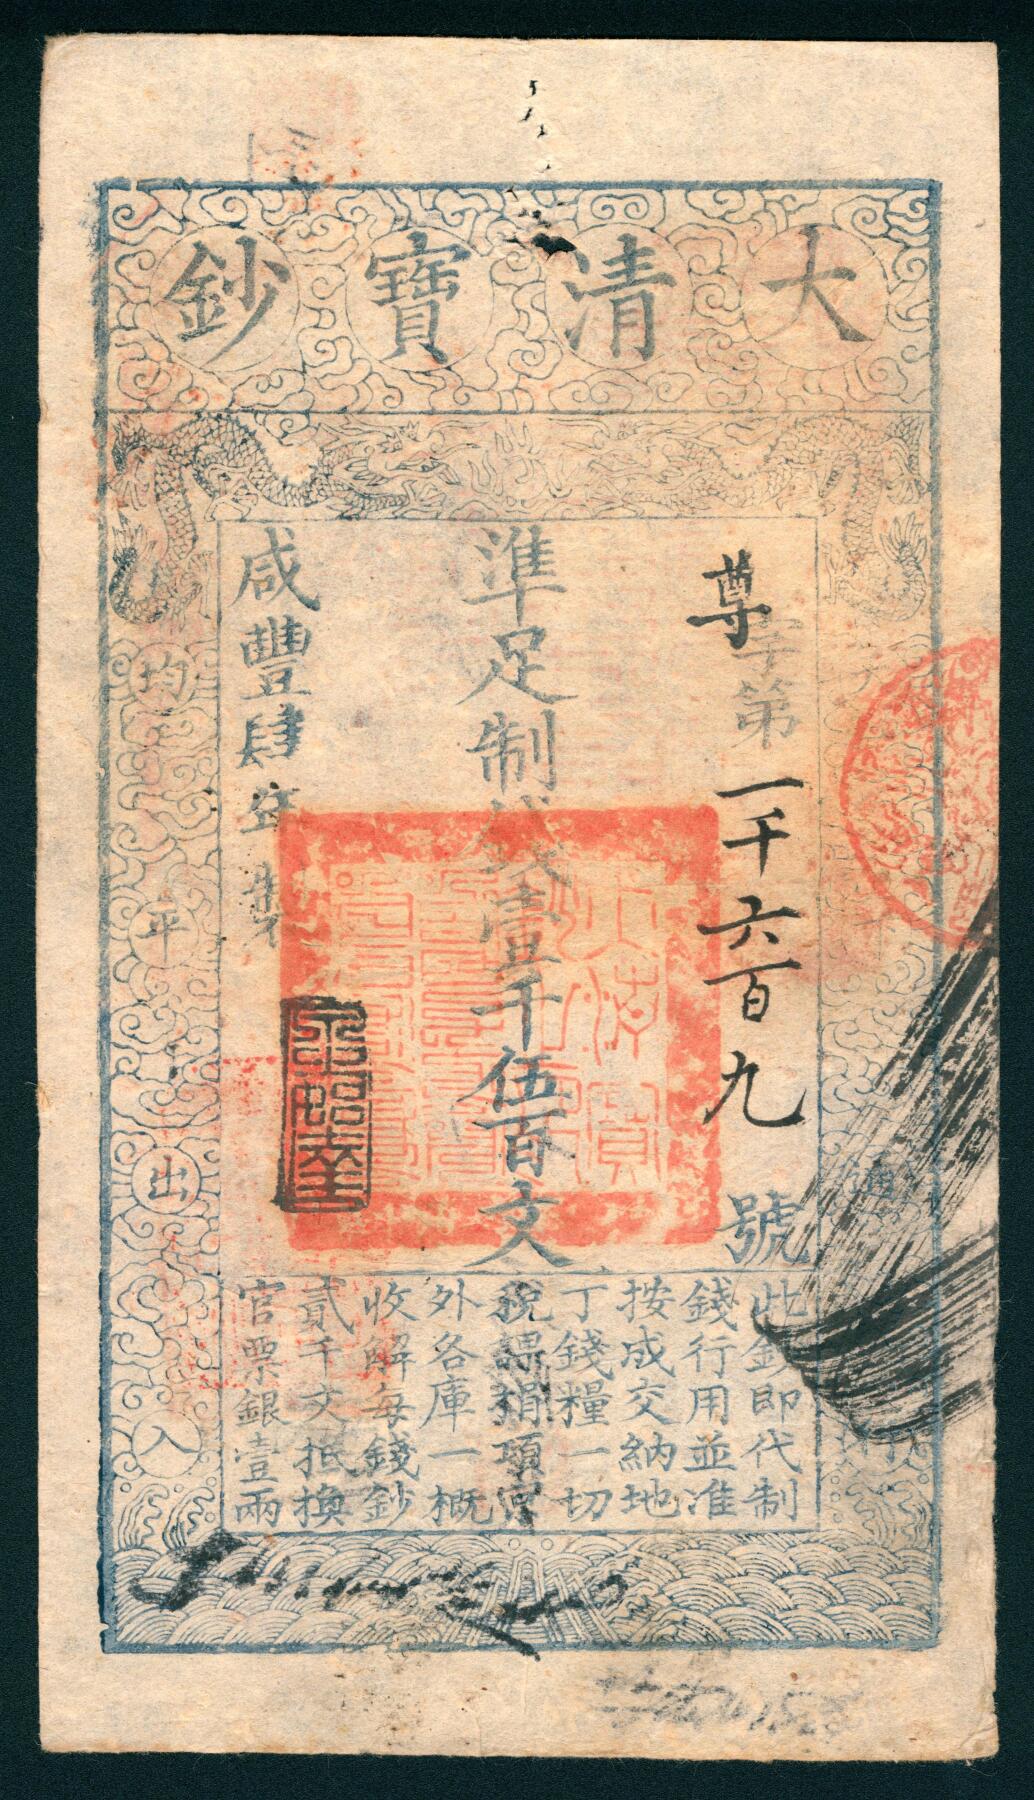 大清寶鈔
尊字第一千六百九號
準足制錢壹千伍百文
咸豐肆年製
均平出入
通
此鈔即代制
錢行用並准
按成交納地
丁錢糧一切
稅課捐項京
外各庫一概
收解每錢鈔
貳千文抵換
官票銀壹兩